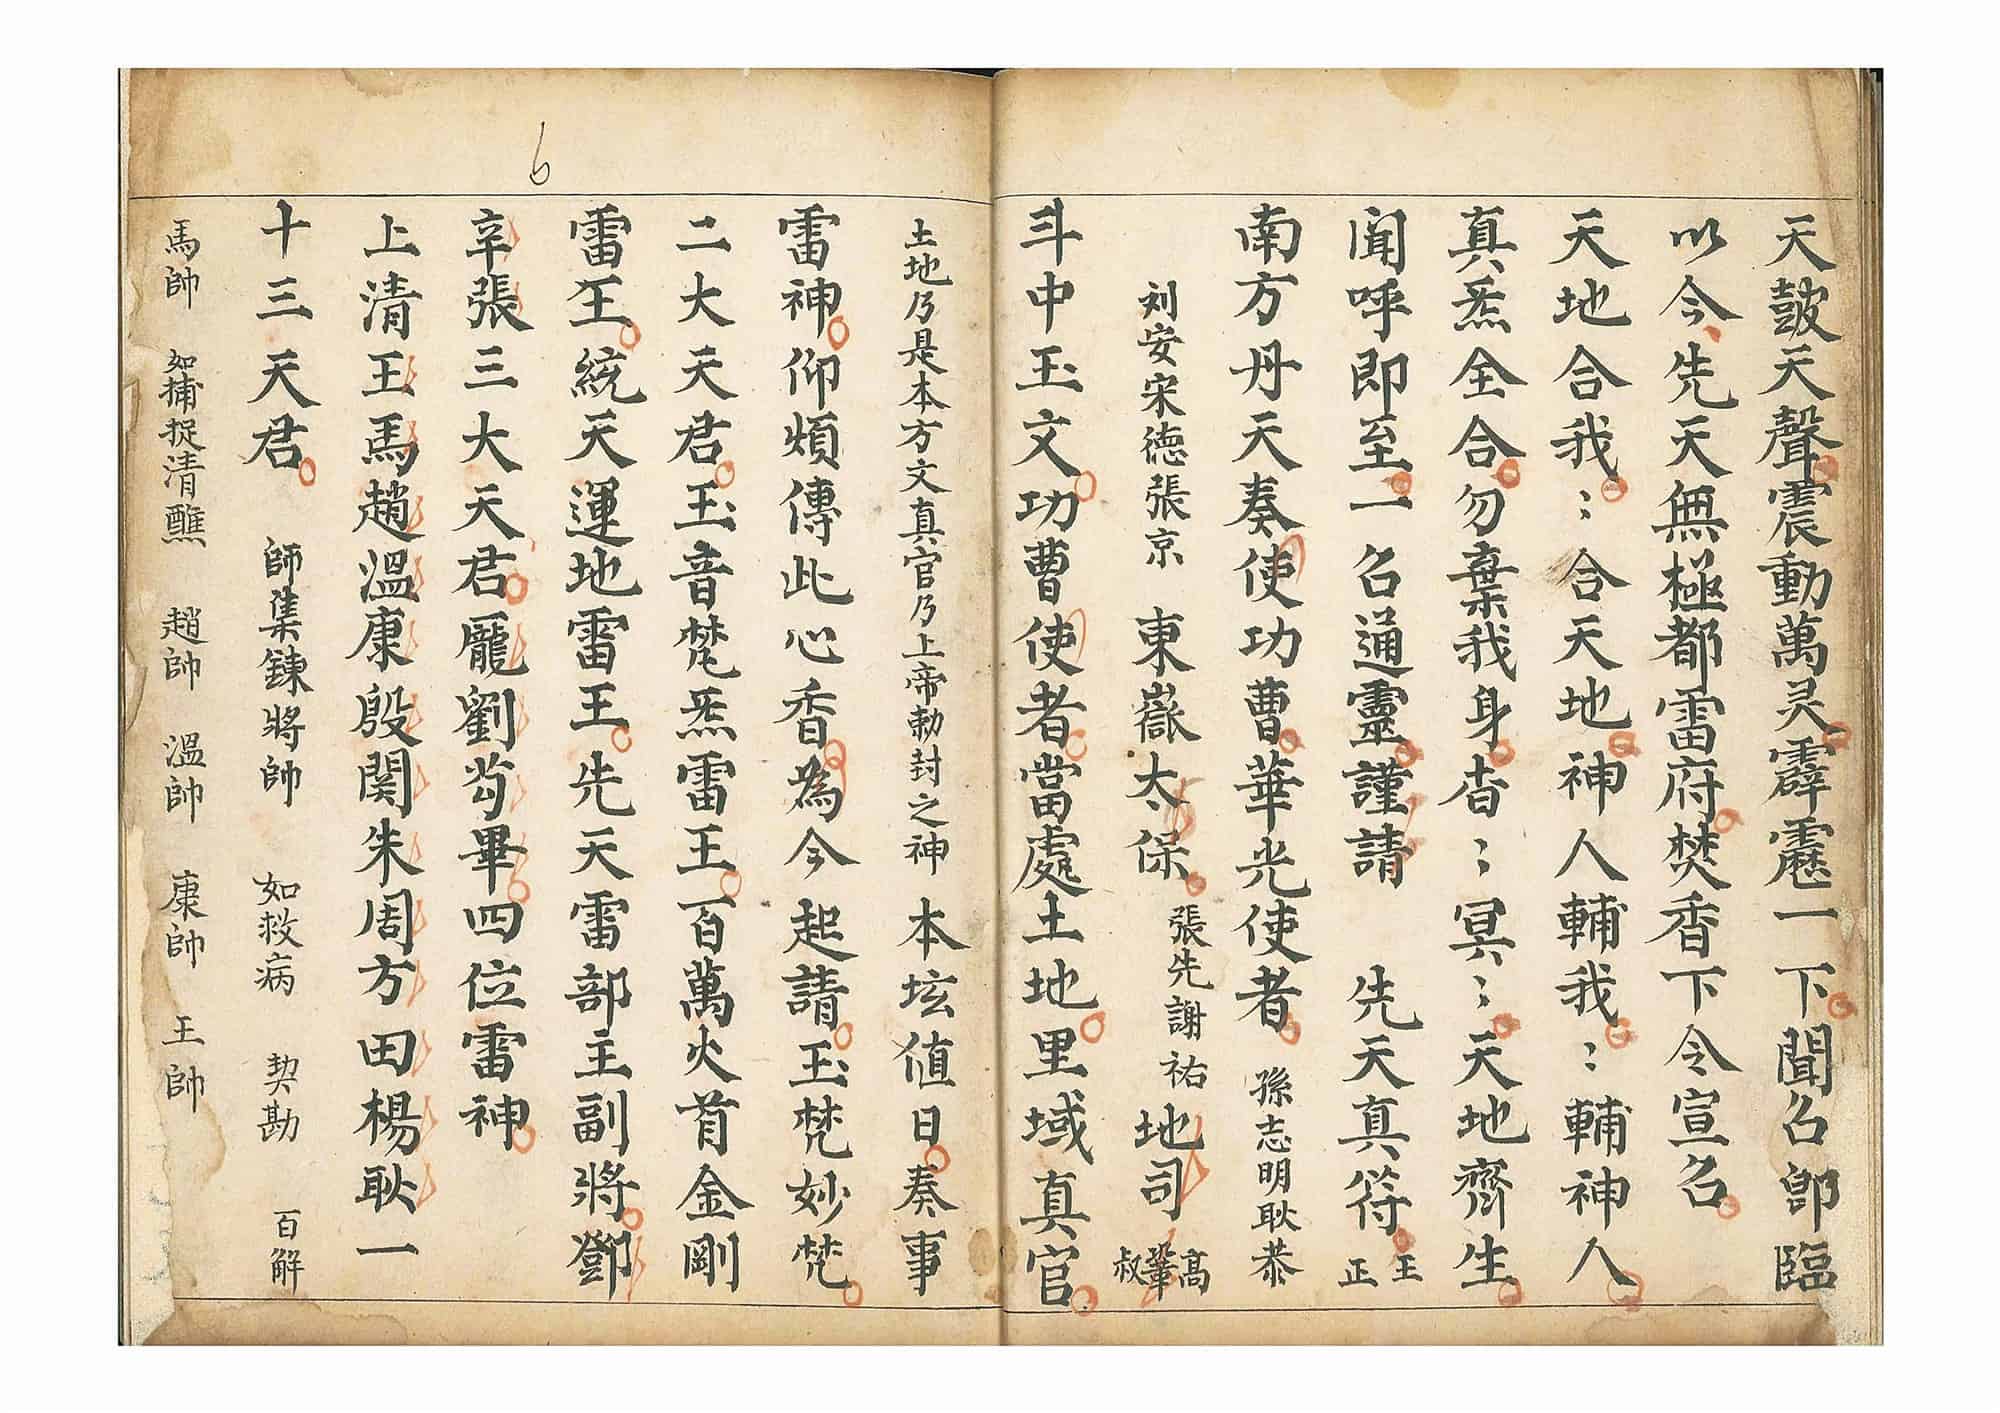 天皷天聲震動萬灵霹靂一下聞名即臨
以今先天無極都雷府焚香下令宣名
天地合我〻合天地神人輔我〻輔神人
真炁全合勿棄我身杳〻冥〻天地齊生
聞呼即至一名通靈謹請 先天真符 王正
南方丹天奏使功曹華光使者 孫志明耿恭
刘安宋德張京 東嶽太保 張先謝祐 地司 高鞏叔
斗中玉文功曹使者當處土地里域真官
土地乃是本方文真官乃上帝勅封之神 本坛値日奏事
雷神仰煩傳此心香為今起請玉梵妙梵
二大天君玉音梵炁雷王百萬火首金剛
雷王統天運地雷王先天雷部主副將鄧
辛張三大天君龐劉茍畢四位雷神
上清王馬趙溫康殷関朱周方田楊耿一
十三天君 師集鍊將帥 如救病 契勘 百解
馬帥 如捕捉清醮 趙帥 溫帥 康帥 王帥
6